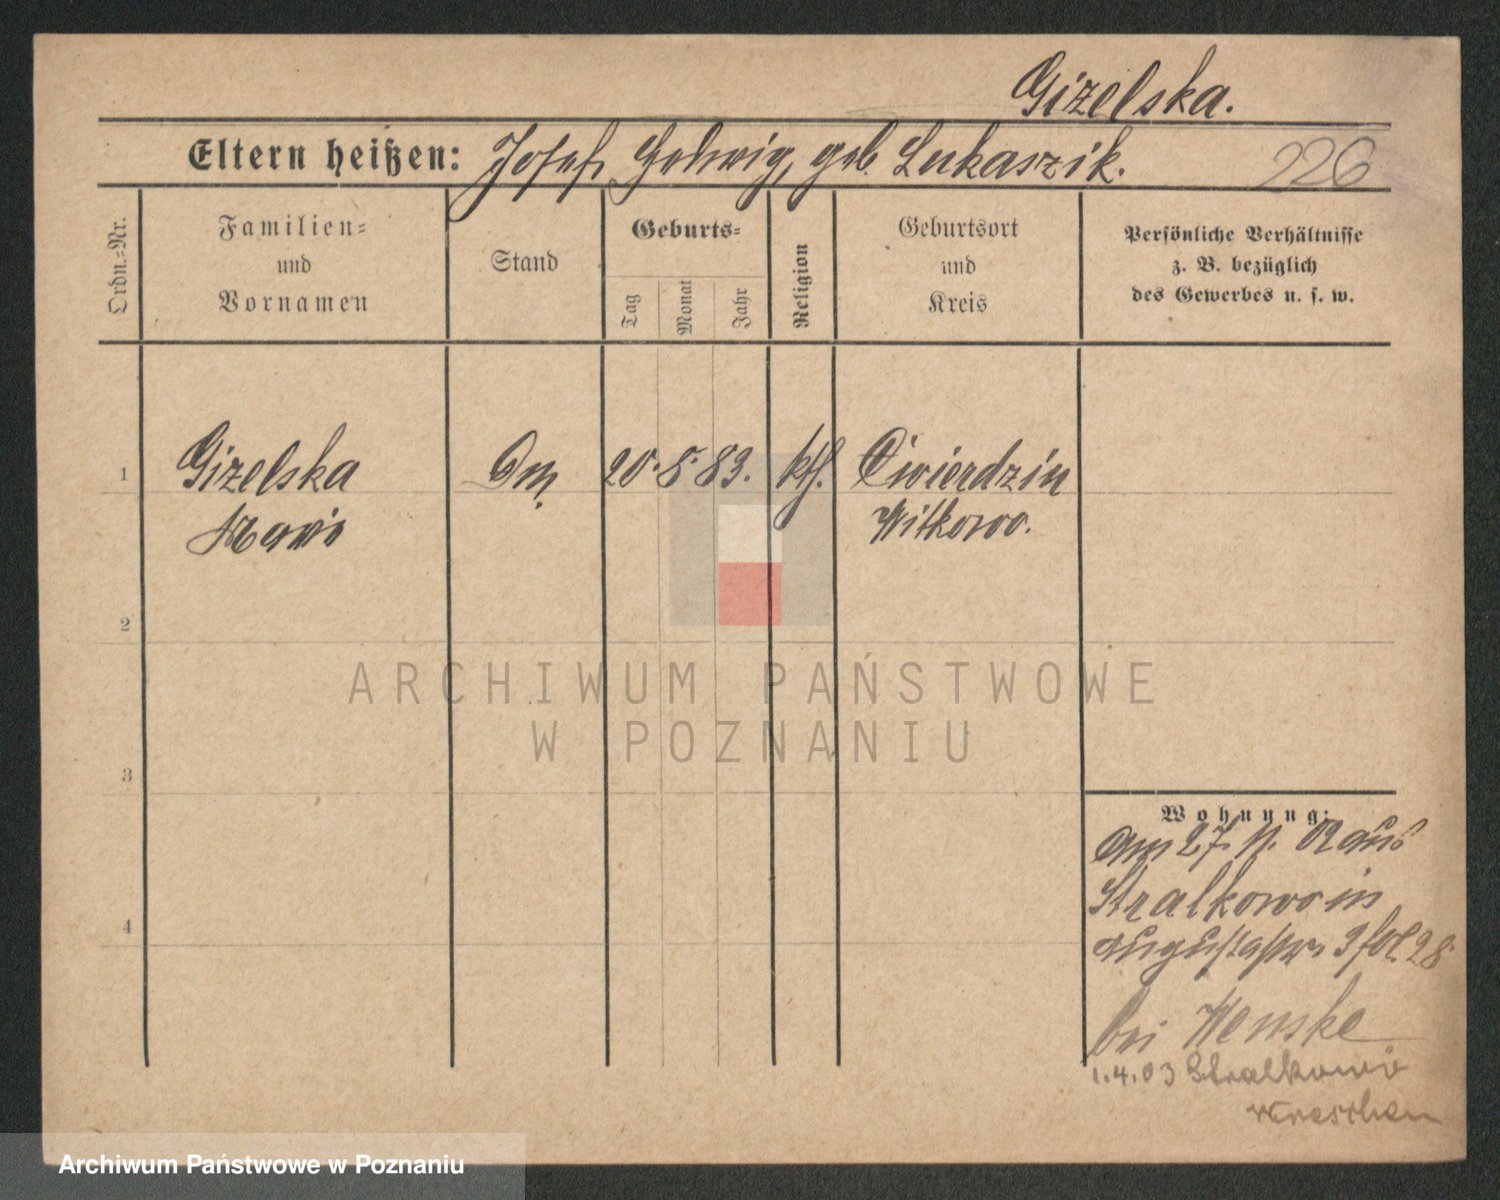 Gizelska.
Eltern heißen: Josef, Hedwig, geb. Lukaszik. 226
Ordn.=Nr.
Familien=
und
Vornamen
Stand
Geburts=
Tag
Monat
Jahr
Religion
Geburtsort
und
Kreis
Persönliche Verhältnisse
z. B. bezüglich
des Gewerbes u. s. w.
1 Gizelska 20. 8. 83. kth. Cwierdzin
Witkowo.
2
ARCHIWUM PAŃSTWOWE
W POZNANIU
3
Wohnung:
Am 27. 11. 02 aus
Stralkowo in
Augustastr. 3 fol. 28
bei Wenske
1.4.03 Stralkowo
Wreschen
4
Archiwum Państwowe w Poznaniu